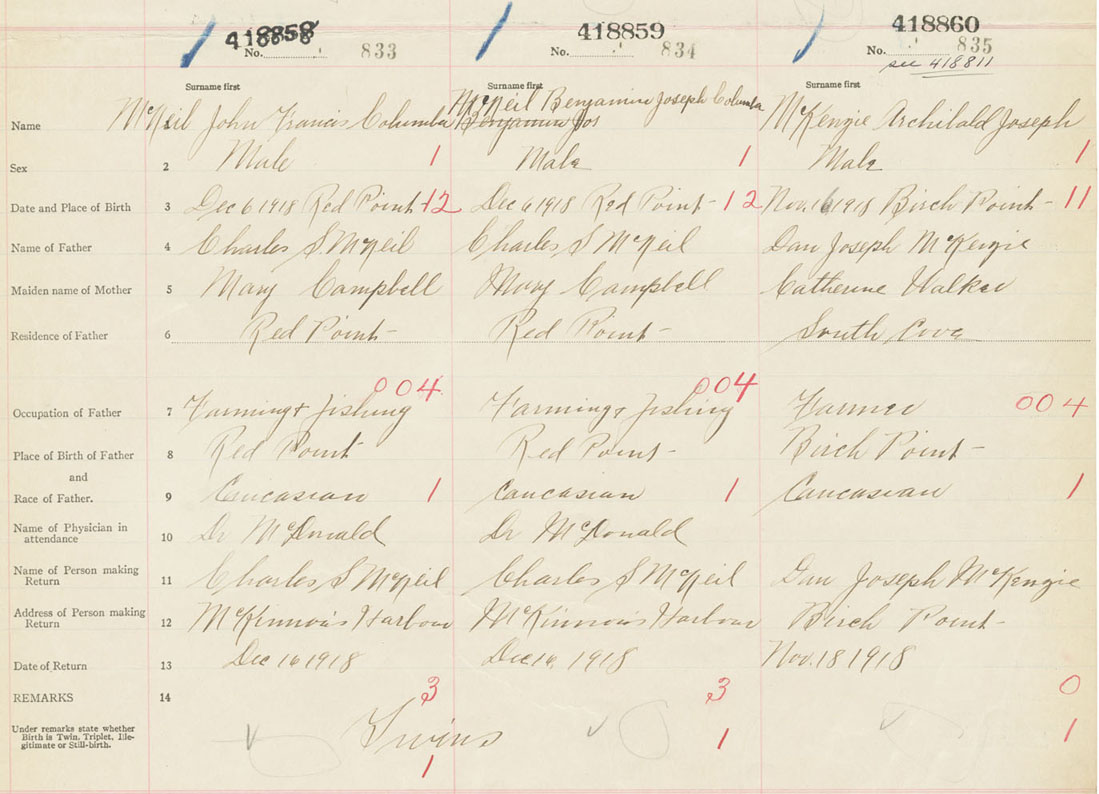 418858 418859 418860
No. 833 No. 834 No. 835
see 418811
Surname first Surname first Surname first
Name McNeil John Francis Columba McNeil Benjamin Joseph Columba McKenzie Archibald Joseph
Benjamin Jos
Sex 2 Male 1 Male 1 Male 1
Date and Place of Birth 3 Dec 6 1918 Red Point - 12 Dec 6 1918 Red Point - 12 Nov. 16 1918 Birch Point - 11
Name of Father 4 Charles S McNeil Charles S McNeil Dan Joseph McKenzie
Maiden name of Mother 5 Mary Campbell Mary Campbell Catherine Walker
Residence of Father 6 Red Point - Red Point - South Cove
004 004
Occupation of Father 7 Farming & fishing Farming & fishing Farmer 004
Place of Birth of Father 8 Red Point Red Point - Birch Point -
and
Race of Father. 9 Caucasian 1 Caucasian 1 Caucasian 1
Name of Physician in
attendance 10 Dr McDonald Dr McDonald
Name of Person making
Return 11 Charles S McNeil Charles S McNeil Dan Joseph McKenzie
Address of Person making
Return 12 McKinnon's Harbour McKinnon's Harbour Birch Point -
Date of Return 13 Dec 16 1918 Dec 16, 1918 Nov. 18 1918
REMARKS 14 3 3 0
Under remarks state whether
Birth is Twin, Triplet, Ille-
gitimate or Still-birth. Twins 1 1
1